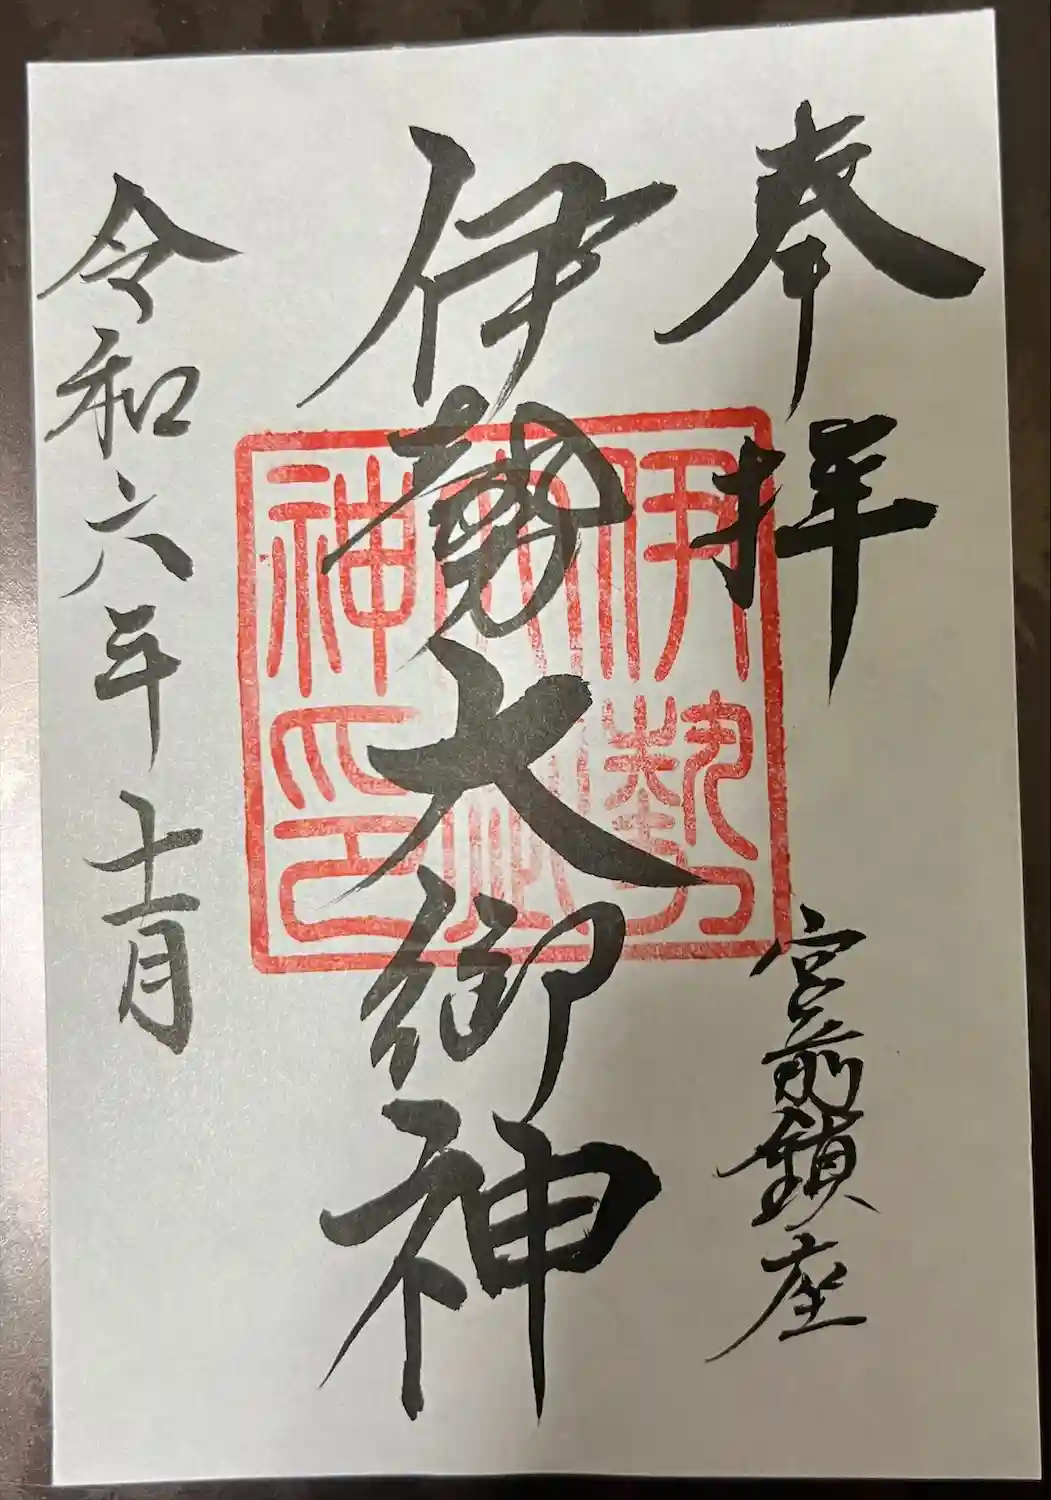 奉拝
宮前鎮座
伊勢大御神
伊勢
大神
神印
令和六年十一月